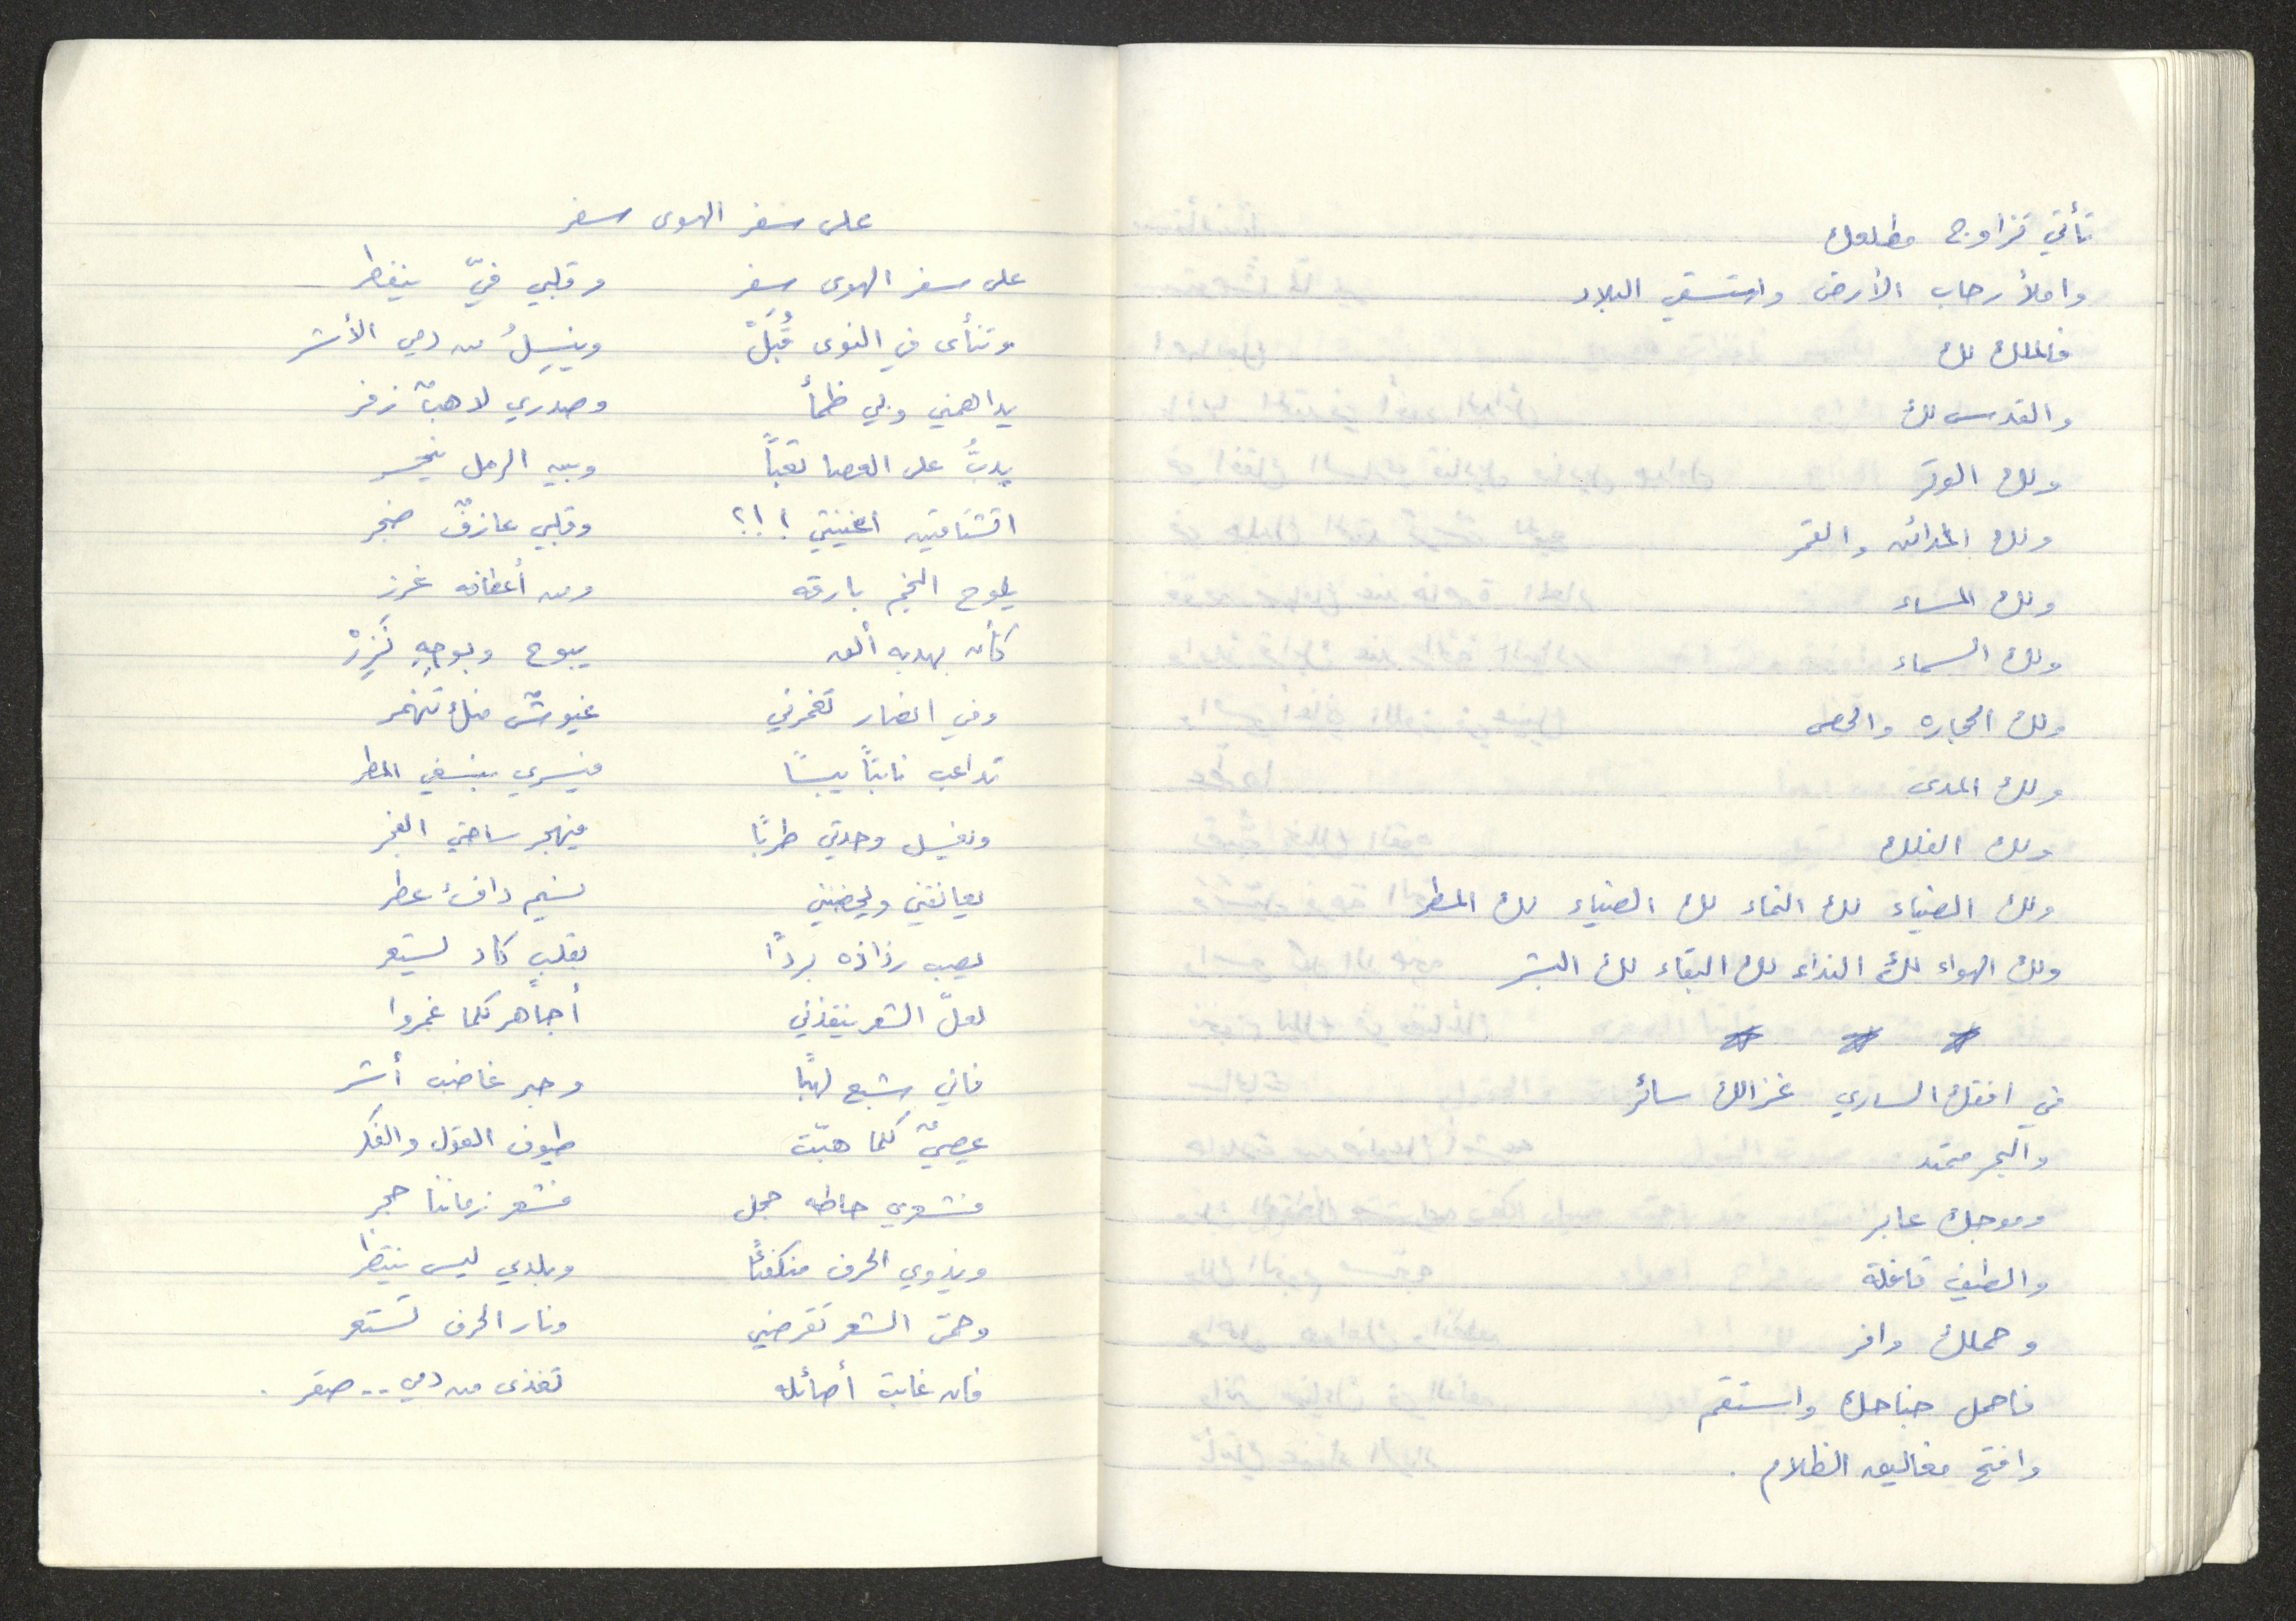 تأتي تزاوج مطلعك
واملأ رحاب الأرض واستسقي البلاد
فالملك لك
والقدس لك
ولك الوتر
ولك المدائن والقمر
ولك المساء
ولك السماء
ولك الحجاره والحصى
ولك المدى
ولك الفلك
ولك الضياء لك النماء لك الضياء لك المطر
ولك الهواء لك النداء لك البقاء لك البشر
في افقك الساري غزالك سائر
والبحر ممتد
وموجك عابر
والطيف قافلة
وحملك وافر
فاحمل جناحك واستقم
وافتح مغاليق الظلام .
على سفر الهوى سفر
على سفر الهوى سفر وقلبي فيّ ينفطر
وتنأى في النوى قُبَلٌ وينسلُ من دمي الأشر
يداهمني وبي ظمأ وصدري لاهبٌ زفر
يدبُّ على العصا تعباً وبين الرمل ينحسر
اتشتاقين اغنيتي ! !؟ وقلبي عازفٌ ضجر
يلوح النجم بارقه ومن أعطافه غرر
كأن بهديه ألق يبوح وبوحهِ نَزِرْ
وفي تغمرني غيوثٌ منك تنهمر
تداعب نابتاً يبسًا فيسري بنسغي المطر
ونغيسل وحدتي طربًا فينهمر ساحتي الفجر
يعانقني ويحضنني نسيم دافئ عطر
يصب رذاذه بردًا بقلبٍ كاد يستعر
لعلّ الشعر ينقذني أجاهر كلما غمروا
فاني شبع لهبًا وحبر غاضب أشر
عصيٌ كلما هبّت طيوف القول والفكر
فشعري حاطه خجل فشعر زماننا حجر
ويذوي الحرف منكفئًا وبلدي ليس ينتظر
وحمى الشعر تقرضني ونار الحرف تستعر
فان غابت أصائله تغذى من دمي .. صقر .